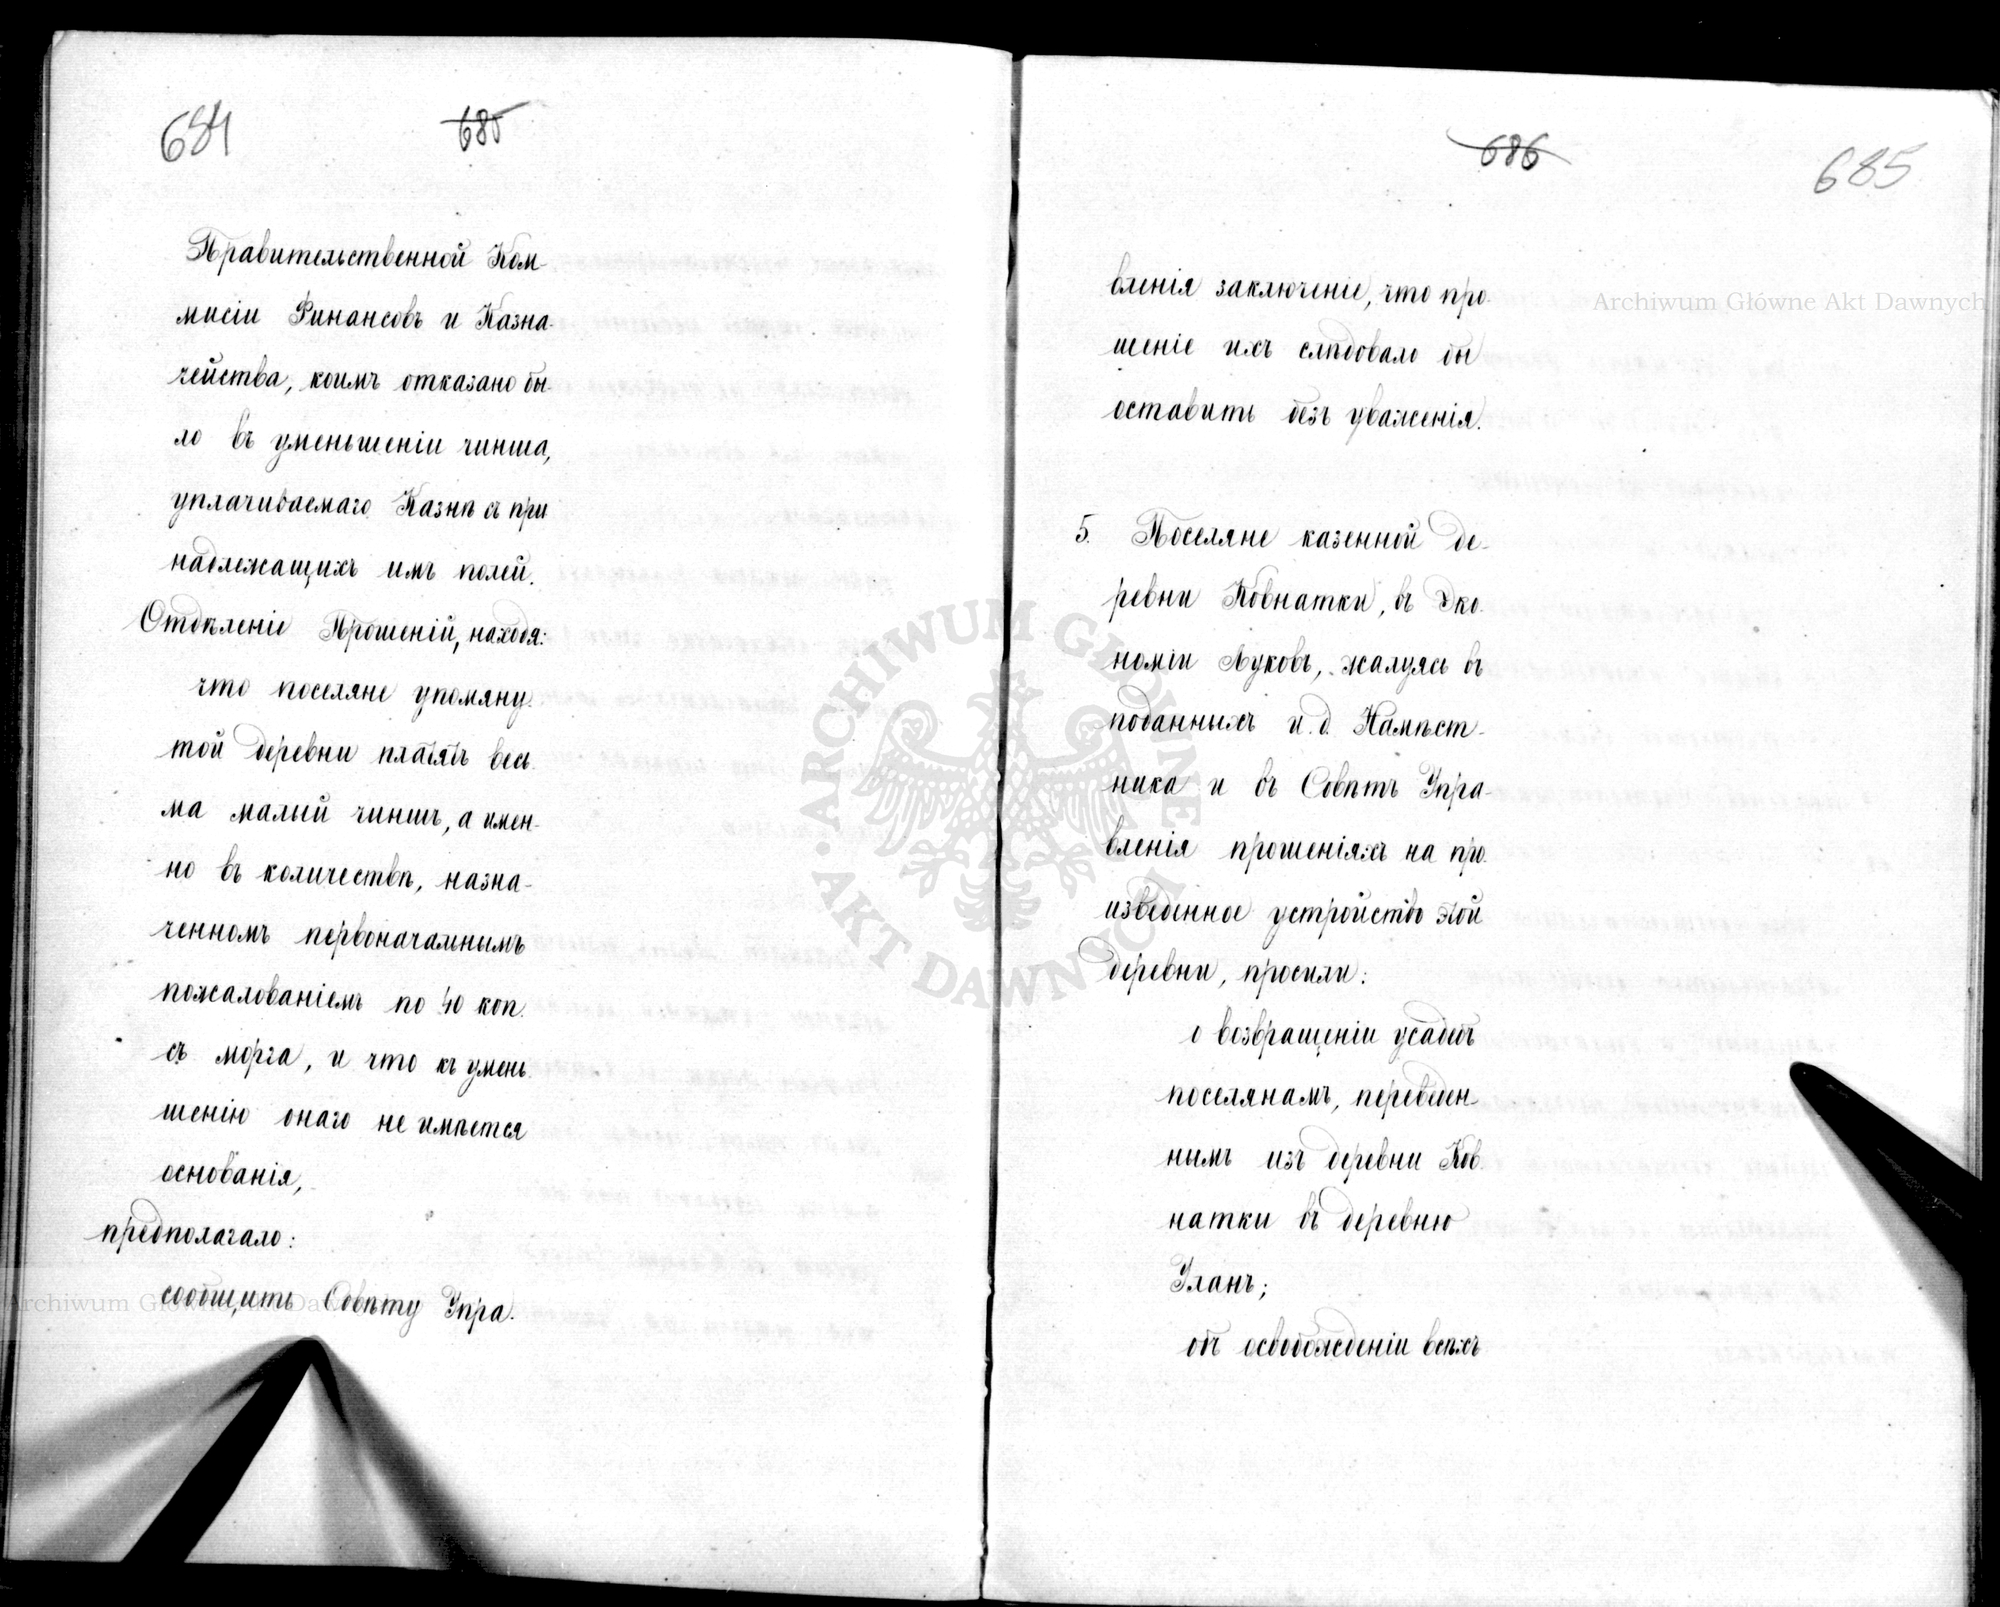 684
685
Правительственной Ком-
мисіи Финансовъ и Казна-
чейства, коимъ отказано бы-
ло въ уменьшеніи чинша,
уплачиваемаго Казнѣ съ при
надлежащихъ имъ полей.
Отдѣленіе Прошеній, находя:
что поселяне упомяну-
той деревни платятъ весь-
ма малый чиншъ, а имен-
но въ количествѣ, назна-
ченномъ первоначальнымъ
пожалованіемъ по 40 коп.
съ морга, и что къ умень-
шенію онаго не имѣется
основанія,
предполагало:
сообщить Совѣту Упра-
686
685
вленія заключеніе, что про-
шеніе ихъ слѣдовало бы
оставить безъ уваженія.
5. Поселяне казенной де-
ревни Ковнатки, въ Эко-
номіи Луковъ, жалуясь въ
поданныхъ и. д. Намѣст-
ника и въ Совѣтъ Упра-
вленія прошеніяхъ на про-
изведенное устройство этой
деревни, просили:
о возвращеніи усадьбъ
поселянамъ, переведен-
нымъ изъ деревни Ков-
натки въ деревню
Уланъ;
объ освобожденіи всѣхъ
Archiwum Główne Akt Dawnych
Archiwum Główne Akt Dawnych
ARCHIWUM GŁÓWNE AKT DAWNYCH